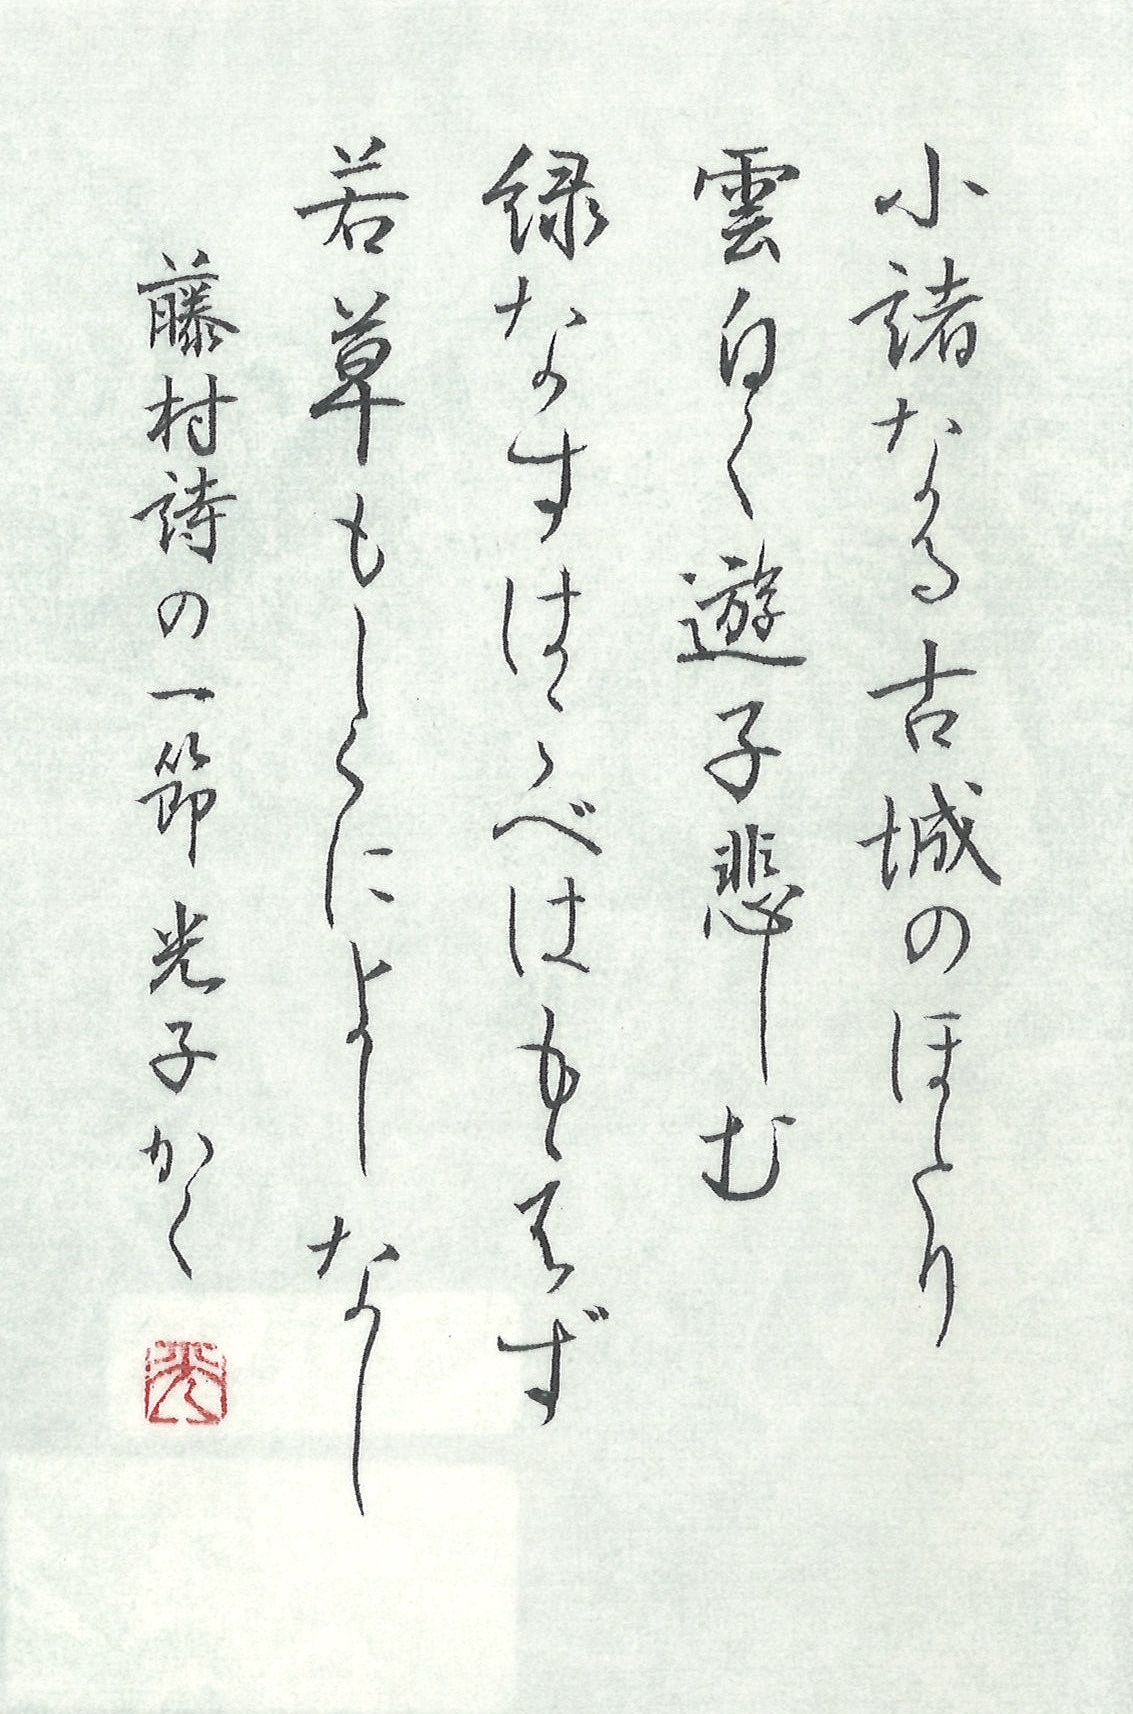 小諸なる古城のほとり
雲白く遊子悲しむ
緑なすはこべはもえず
若草もしくによしなし
藤村詩の一節 光子かく
光